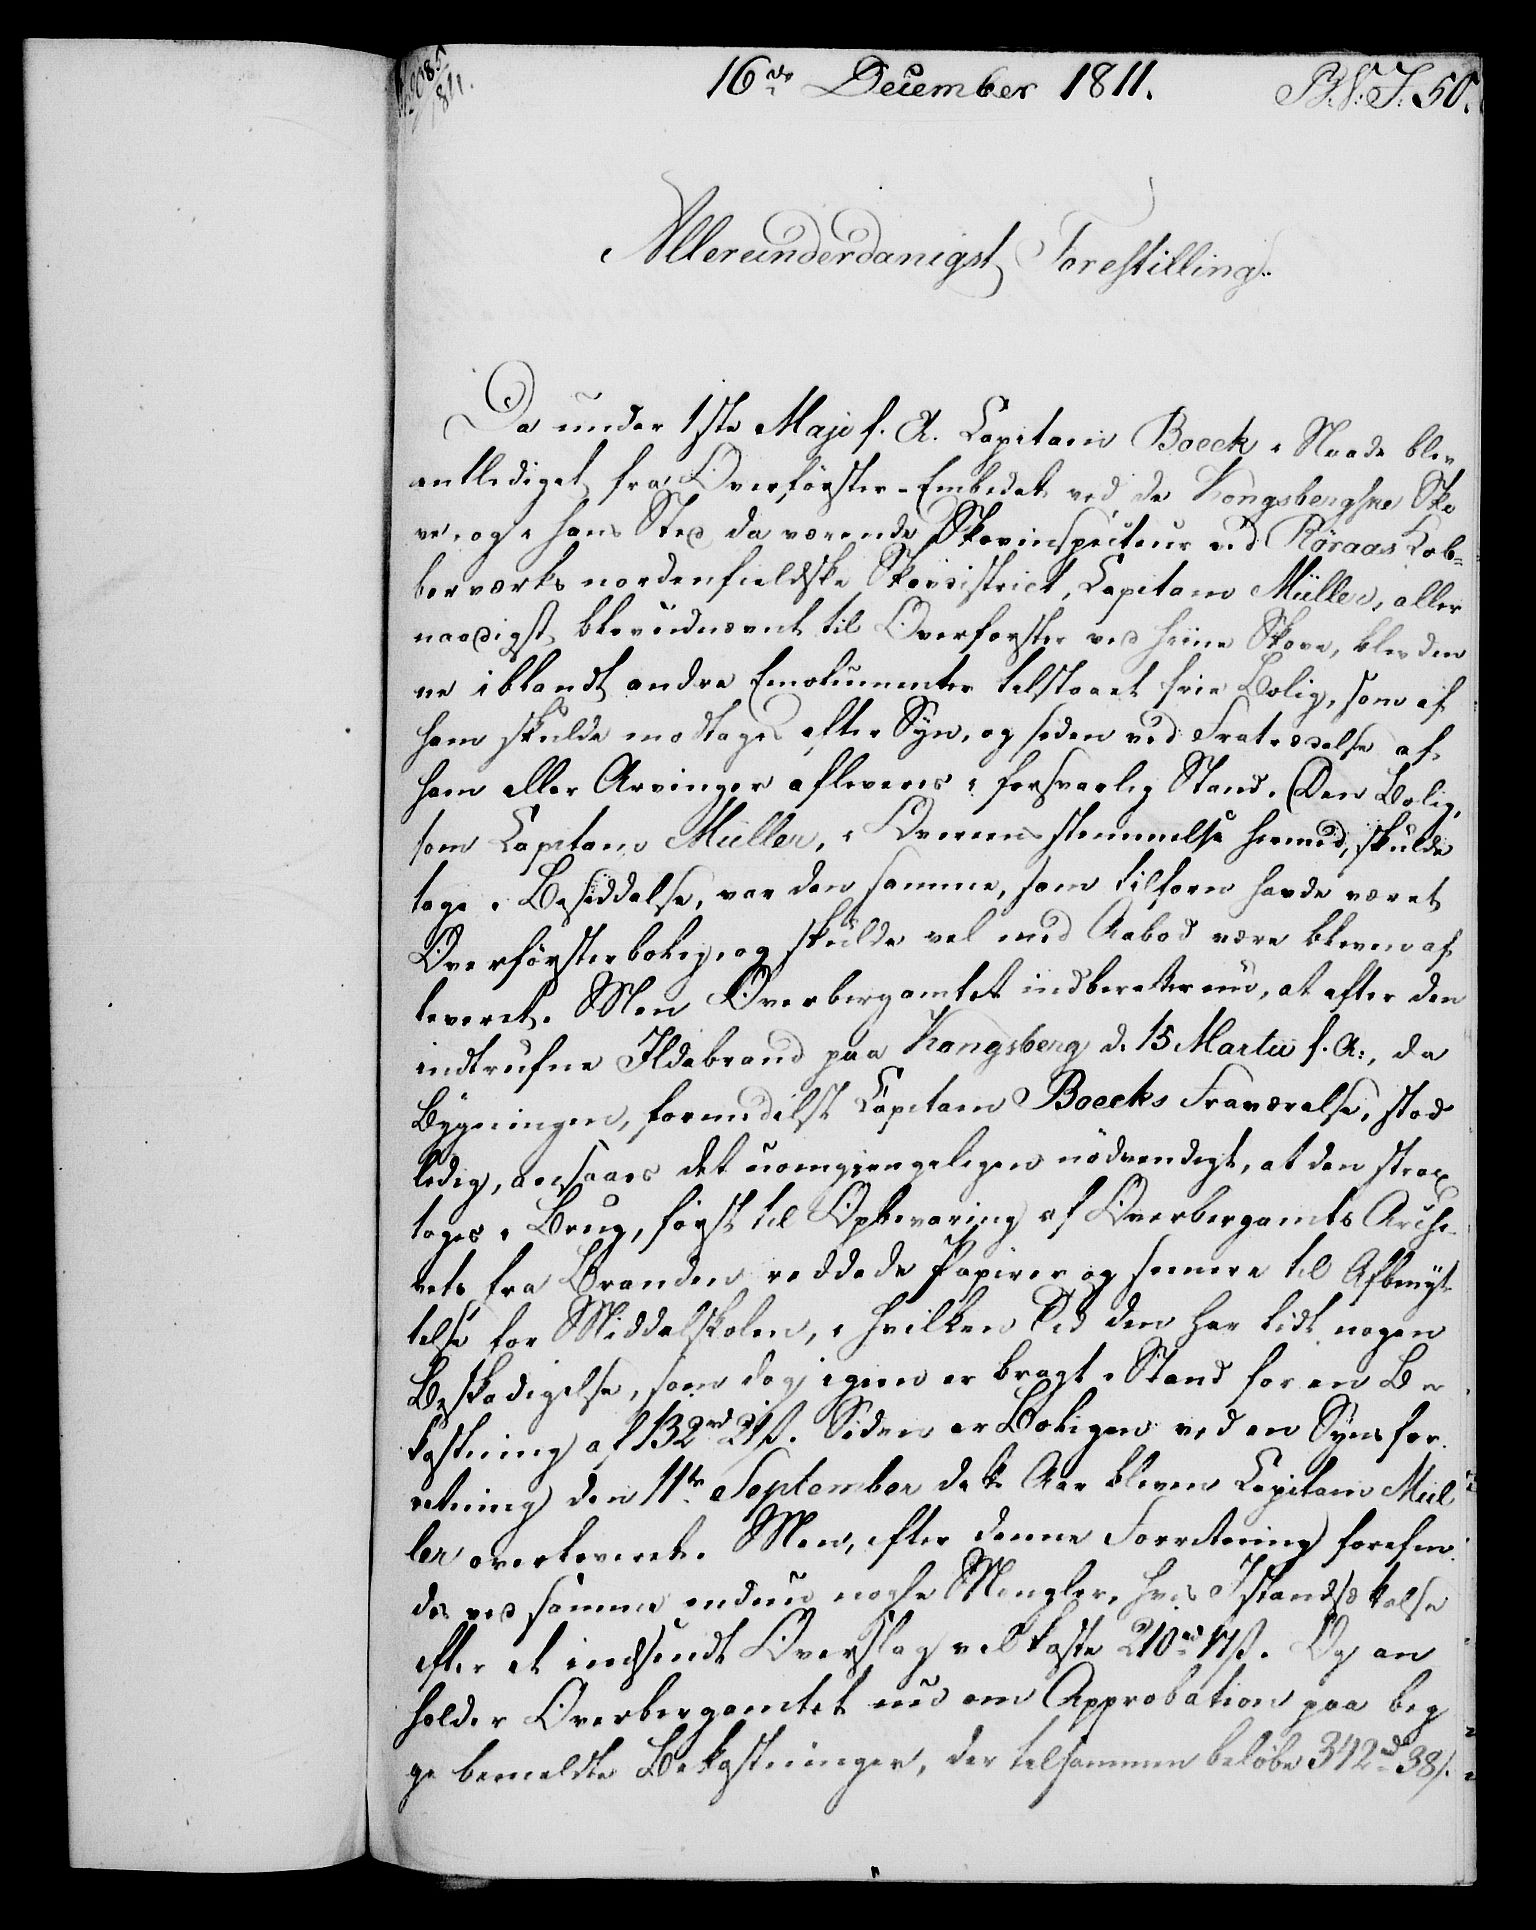 No 2085/811.
16de December 1811.
B. V. J. 50.
Allerunderdanigst Forestilling.
Da under 1ste Maji f. A. Capitain Boeck i Naade blev
entlediget fra Overförster-Embedet ved de Kongsbergske Sko
ve, og i hans Sted da værende Skovinspecteur ved Röraas Kob=
berværks nordenfieldske Skovdistrict, Capitain Müller, aller
naadigst blev udnævnt til Overforster ved hiine Skove, blev den
ne iblandt andre Emolumenter tilstaaet frie Bolig, som af
ham skulde modtages efter Syn, og siden ved Fratrædelse af
ham eller Arvinger afleveres i forsvarlig Stand. Den Bolig,
som Capitain Müller, i Overeensstemmelse hermed, skulde
tage i Besiddelse, var den samme, som tilforn havde været
Overförsterbolig, og skulde vel med Aabod være bleven af
leveret. Men Overbergamtet indberetter nu, at efter den
indtrufne Ildebrand paa Kongsberg d. 15 Martii f. A:, da
Bygningen, formedelst Capitain Boecks Fraværelse, stod
ledig, ansaaes det uomgjengeligen nödvendigt, at den strax
toges i Brug, först til Opbevaring af Overbergamts Archi
vets fra Branden reddede Papirer og senere til Afbenyt
telse for Middelskolen, i hvilken Tid den har lidt nogen
Beskadigelse, som dog igien er bragt i Stand for en Be
kostning af 132rd 21ß. Siden er Boligen ved en Synsfor
retning den 11te September dette Aar bleven Capitain Mül
ler overleveret. Men, efter denne Forretning forefin
des ved samme endnu nogle Mangler, hvis Istandsættelse
efter et indsendt Overslag vil koste 210rd 17ß. Og an
holder Overbergamtet nu om Approbation paa beg
ge bemeldte Bekostninger, der tilsammen belöbe 342rd 38ß.